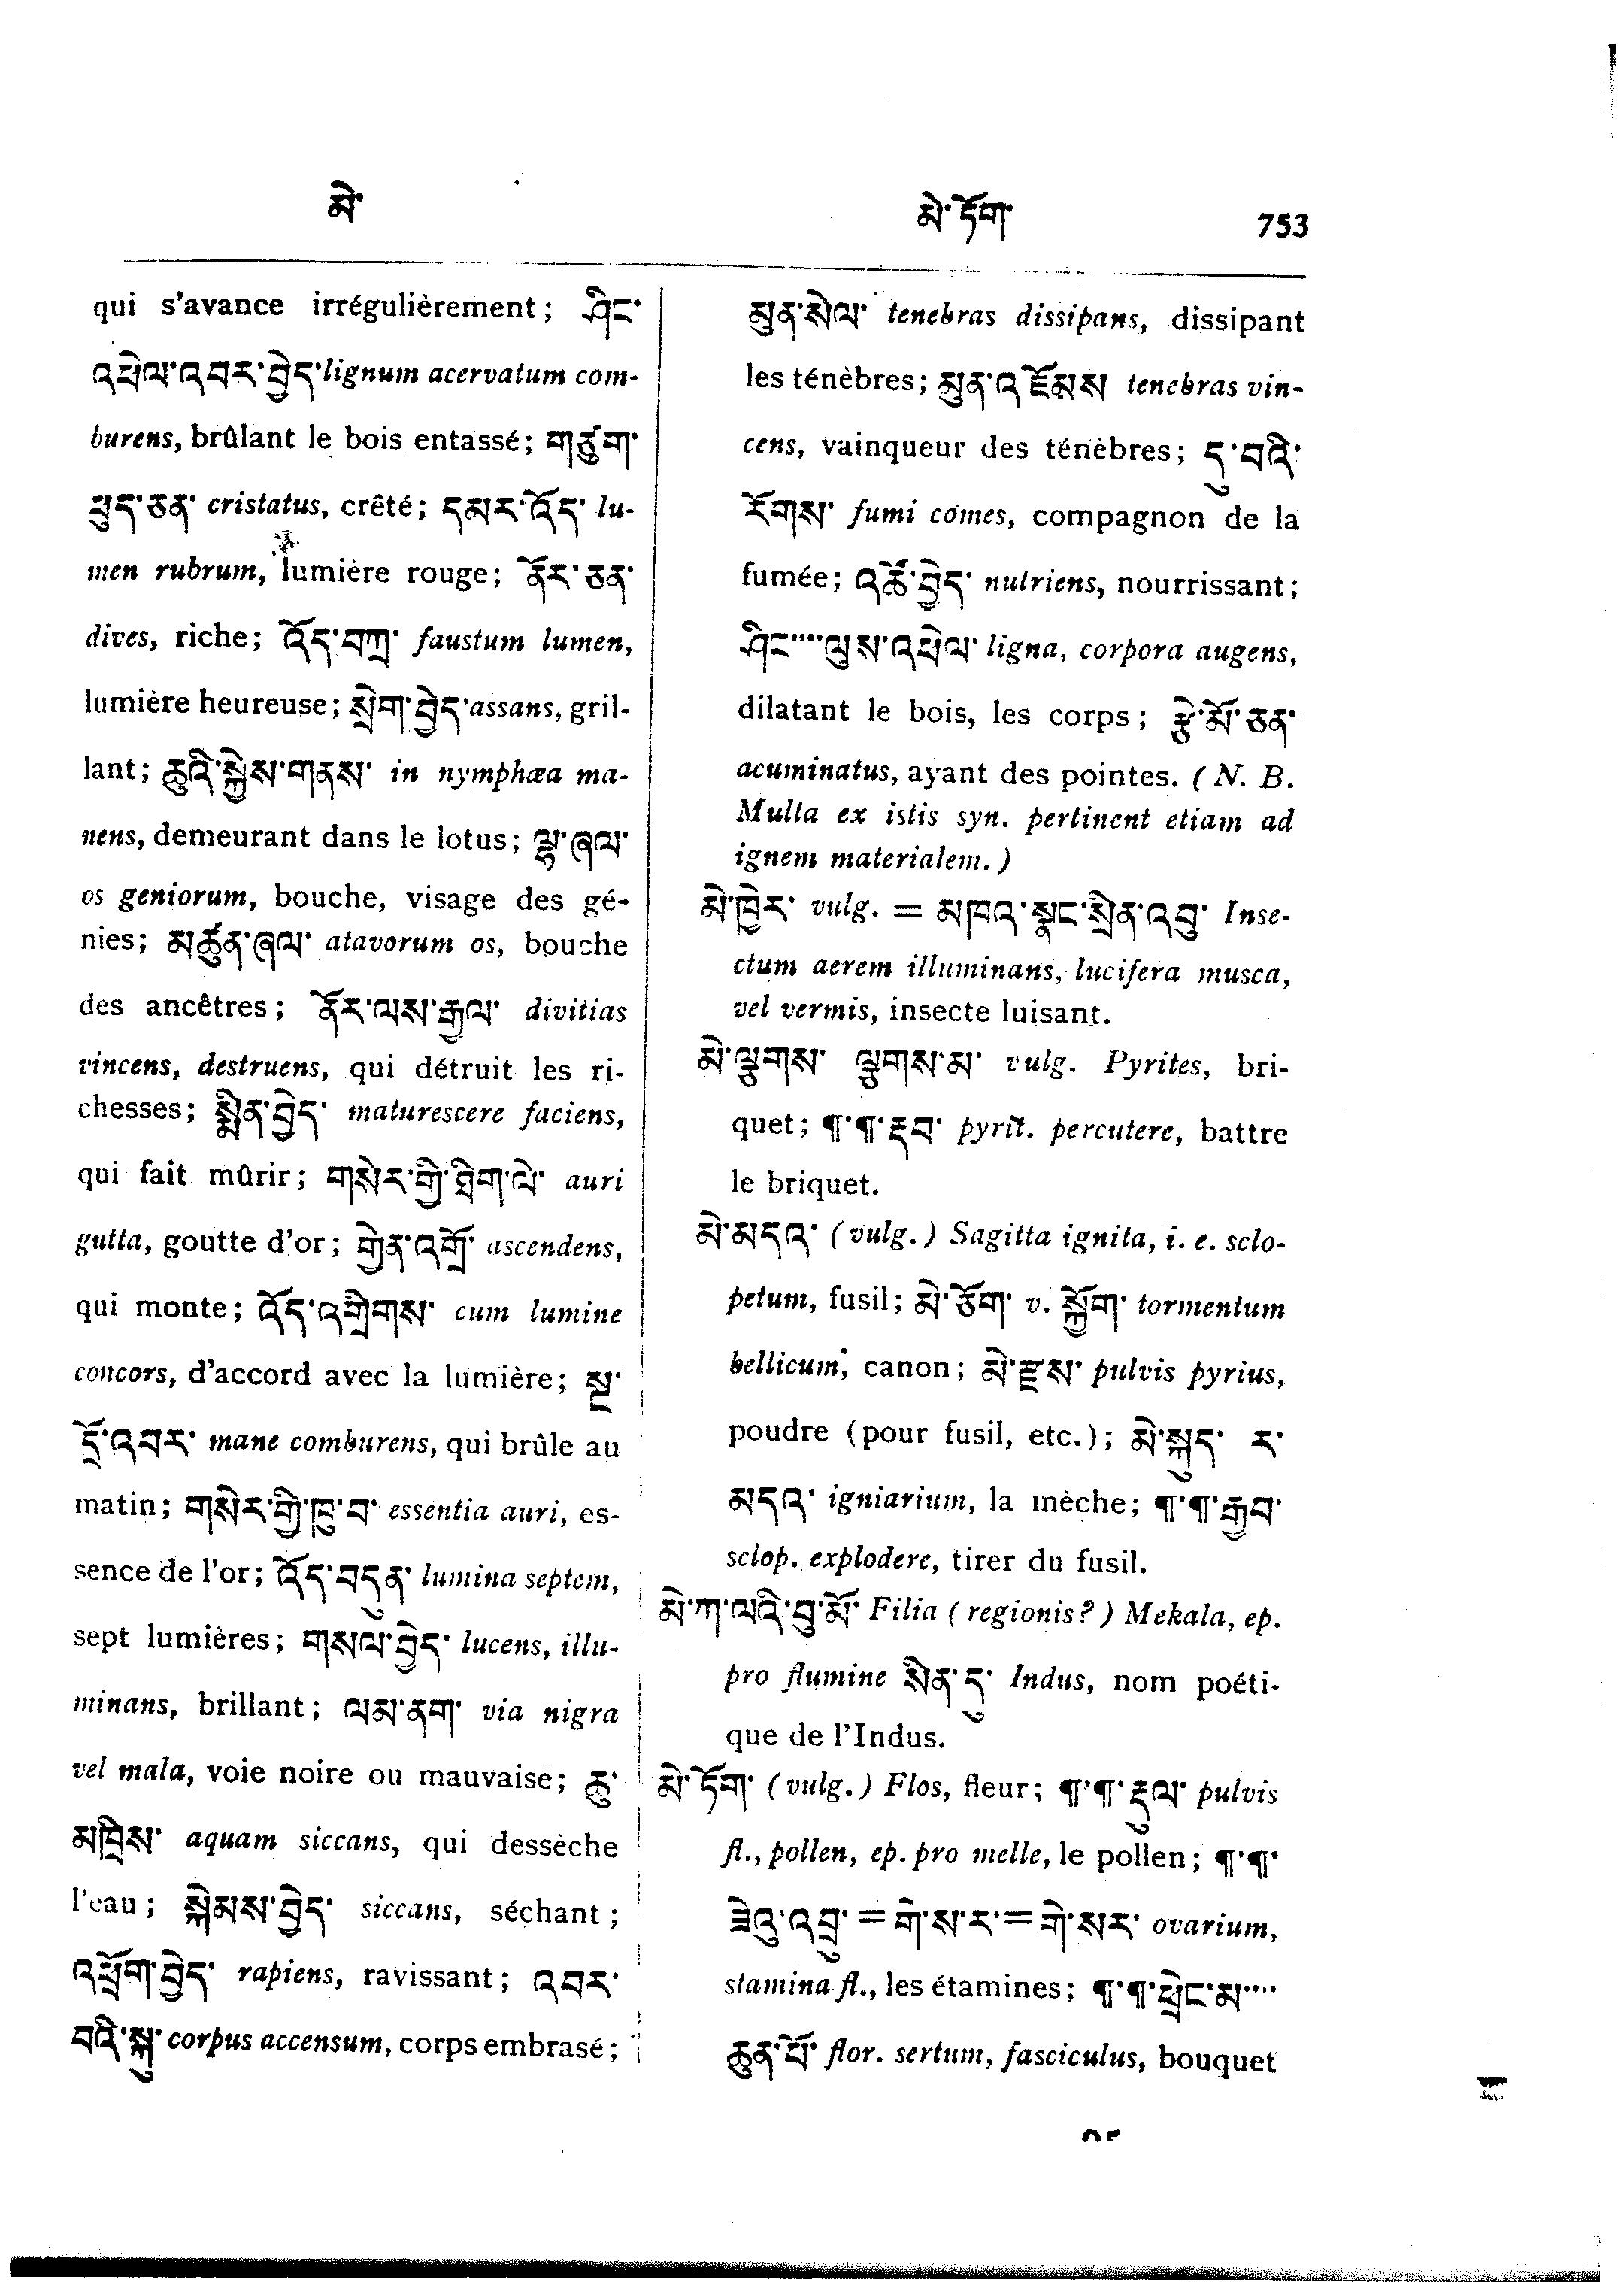 མེ་
མེ་ཏོག་ 753
qui s'avance irrégulièrement; ཤིང་
འཕེལ་འབར་བྱེད་ lignum acervatum com-
burens, brûlant le bois entassé; གཙུག་
ཕུད་ཅན་ cristatus, crêté; དམར་འོད་ lu-
men rubrum, lumière rouge; ནོར་ཅན་
dives, riche; འོད་བཀྲ་ faustum lumen,
lumière heureuse; སྲེག་བྱེད་ assans, gril-
lant; ཆུའི་སྐྱེས་གནས་ in nymphæa ma-
nens, demeurant dans le lotus; ལྷ་ཞལ་
os geniorum, bouche, visage des gé-
nies; མཚུན་ཞལ་ atavorum os, bouche
des ancêtres; ནོར་ལས་རྒྱལ་ divitias
vincens, destruens, qui détruit les ri-
chesses; སྨིན་བྱེད་ maturescere faciens,
qui fait mûrir; གསེར་གྱི་ཐིག་ལེ་ auri
gutta, goutte d'or; གྱེན་འགྲོ་ ascendens,
qui monte; འོད་འགྲིགས་ cum lumine
concors, d'accord avec la lumière; སྔ་
དྲོ་འབར་ mane comburens, qui brûle au
matin; གསེར་གྱི་ཁུ་བ་ essentia auri, es-
sence de l'or; འོད་བདུན་ lumina septem,
sept lumières; གསལ་བྱེད་ lucens, illu-
minans, brillant; ལམ་ནག་ via nigra
vel mala, voie noire ou mauvaise; ཆུ་
མཁྲིས་ aquam siccans, qui dessèche
l'eau; སྐེམས་བྱེད་ siccans, séchant;
འཕྲོག་བྱེད་ rapiens, ravissant; འབར་
བའི་སྐུ་ corpus accensum, corps embrasé;
མུན་སེལ་ tenebras dissipans, dissipant
les ténèbres; མུན་འཇོམས tenebras vin-
cens, vainqueur des ténèbres; དུ་བའི་
རོགས་ fumi comes, compagnon de la
fumée; འཚོ་བྱེད་ nutriens, nourrissant;
ཤིང....ལུས་འཕེལ་ ligna, corpora augens,
dilatant le bois, les corps; རྩེ་མོ་ཅན་
acuminatus, ayant des pointes. (N. B.
Multa ex istis syn. pertinent etiam ad
ignem materialem.)
མེ་ཁྱེར་ vulg. = མཁའ་སྣང་སྲིན་འབུ་ Inse-
ctum aerem illuminans, lucifera musca,
vel vermis, insecte luisant.
མེ་ལྕགས་ ལྕགས་མ་ vulg. Pyrites, bri-
quet; ¶་¶་རྡབ་ pyrit. percutere, battre
le briquet.
མེ་མདའ་ (vulg.) Sagitta ignita, i. e. sclo-
petum, fusil; མེ་ཅོག་ v. སྐྱོག་ tormentum
bellicum, canon; མེ་རྫས་ pulvis pyrius,
poudre (pour fusil, etc.); མེ་སྐུད་ ར་
མདའ་ igniarium, la mèche; ¶་¶་རྒྱབ་
sclop. explodere, tirer du fusil.
མེ་ཀ་ལའི་བུ་མོ་ Filia (regionis?) Mekala, ep.
pro flumine སིན་དུ་ Indus, nom poéti-
que de l'Indus.
མེ་ཏོག་ (vulg.) Flos, fleur; ¶་¶་རྡུལ་ pulvis
fl., pollen, ep. pro melle, le pollen; ¶་¶་
ཟེའུ་འབྲུ་ = གེ་ས་ར་ = གེ་སར་ ovarium,
stamina fl., les étamines; ¶་¶་ཕྲེང་མ....
ཆུན་པོ་ flor. sertum, fasciculus, bouquet